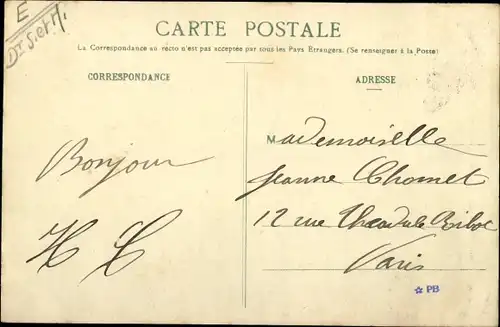 E
Dt S.et M.
CARTE POSTALE
La Correspondance au recto n'est pas acceptée par tous les Pays Etrangers. (Se renseigner à la Poste)
CORRESPONDANCE
ADRESSE
Bonjour
Mademoiselle
Jeanne Chomet
12 rue Théodule Ribot
Paris
☆ PB